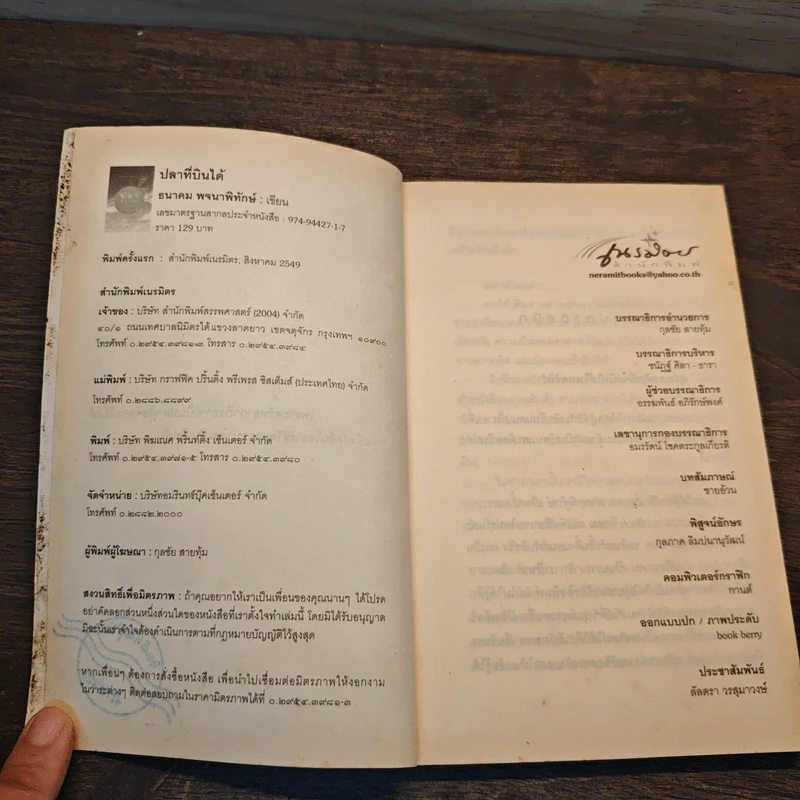 ปลาที่บินได้
ธนาคม พจนาพิทักษ์ : เขียน
เลขมาตรฐานสากลประจำหนังสือ : 974-94427-1-7
ราคา 129 บาท
พิมพ์ครั้งแรก : สำนักพิมพ์เนรมิตร, สิงหาคม 2549
สำนักพิมพ์เนรมิตร
เจ้าของ : บริษัท สำนักพิมพ์สรรพศาสตร์ (2004) จำกัด
๔๐/๑ ถนนเทศบาลนิมิตรใต้ แขวงลาดยาว เขตจตุจักร กรุงเทพฯ ๑๐๙๐๐
โทรศัพท์ ๐.๒๙๕๔.๓๙๘๑-๓ โทรสาร ๐.๒๙๕๔.๓๙๘๔
แม่พิมพ์ : บริษัท กราฟฟิค ปริ้นติ้ง พรีเพรส ซิสเต็มส์ (ประเทศไทย) จำกัด
โทรศัพท์ ๐.๒๘๘๖.๘๘๙๙
พิมพ์ : บริษัท พิฆเณศ พริ้นท์ติ้ง เซ็นเตอร์ จำกัด
โทรศัพท์ ๐.๒๙๕๔.๓๙๘๑-๕ โทรสาร ๐.๒๙๕๔.๓๙๘๐
จัดจำหน่าย : บริษัทอมรินทร์บุ๊คเซ็นเตอร์ จำกัด
โทรศัพท์ ๐.๒๘๘๒.๒๐๐๐
ผู้พิมพ์ผู้โฆษณา : กุลชัย สายทุ้ม
สงวนสิทธิ์เพื่อมิตรภาพ : ถ้าคุณอยากให้เราเป็นเพื่อนของคุณนานๆ ได้โปรด
อย่าคัดลอกส่วนหนึ่งส่วนใดของหนังสือที่เราตั้งใจทำเล่มนี้ โดยมิได้รับอนุญาต
มิฉะนั้นเราจำใจต้องดำเนินการตามที่กฎหมายบัญญัติไว้สูงสุด
หากเพื่อนๆ ต้องการสั่งซื้อหนังสือ เพื่อนำไปเชื่อมต่อมิตรภาพให้งอกงาม
ในวาระต่างๆ ติดต่อสอบถามในราคามิตรภาพได้ที่ ๐.๒๙๕๔.๓๙๘๑-๓
เนรมิตร
สำนักพิมพ์
neramitbooks@yahoo.co.th
บรรณาธิการอำนวยการ
กุลชัย สายทุ้ม
บรรณาธิการบริหาร
ชนัฏฐ์ ศิลา - ธารา
ผู้ช่วยบรรณาธิการ
ธรรฆพันธ์ อภิรักษ์พงศ์
เลขานุการกองบรรณาธิการ
อมรรัตน์ โชคตระกูลเกียรติ
บทสัมภาษณ์
ชายอ้วน
พิสูจน์อักษร
กุลภาค ลิมปนานุวัฒน์
คอมพิวเตอร์กราฟิก
กานต์
ออกแบบปก / ภาพประดับ
book berry
ประชาสัมพันธ์
ลัลตรา วรสุมาวงษ์